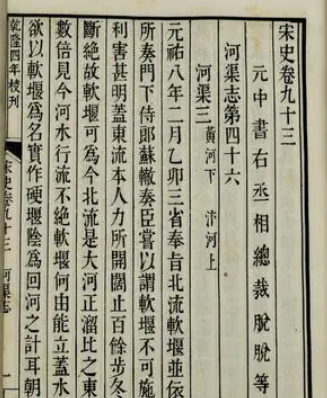 宋史卷九十三
元中書右丞相總裁脫脫等
河渠志第四十六
河渠三 黃河下 汴河上
元祐八年二月乙卯三省奉旨北流軟堰並依
所奏門下侍郎蘇轍奏臣嘗以謂軟堰不可施
利害甚明蓋東流本人力所開闊止百餘步冬
斷絶故軟堰可爲今北流是大河正溜比之東
數倍見今河水行流不絶軟堰何由能立蓋水
欲以軟堰爲名實作硬堰陰爲回河之計耳朝
乾隆四年校刊
宋史卷九十三 河渠志 一